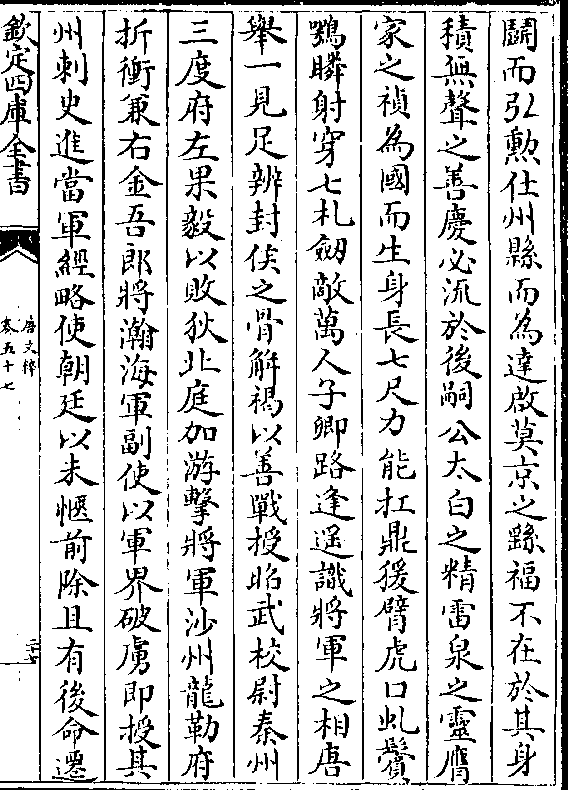 鬭而引勲仕州縣而為達啟莫京之繇福不在於其身
積無聲之善慶必流於後嗣公太白之精雷泉之靈膺
家之禎為國而生身長七尺力能扛鼎猨臂虎口虬鬢
鶚瞵射穿七札劒敵萬人子卿路逢遥識將軍之相唐
舉一見足辨封侯之骨解褐以善戰授昭武校尉秦州
三度府左果毅以敗狄北庭加游擊將軍沙州龍勒府
折衝兼右金吾郎將瀚海軍副使以軍界破虜即授其
州刺史進當軍經略使朝廷以未愜前除且有後命遷
欽定四庫全書
唐文粹
卷五十七